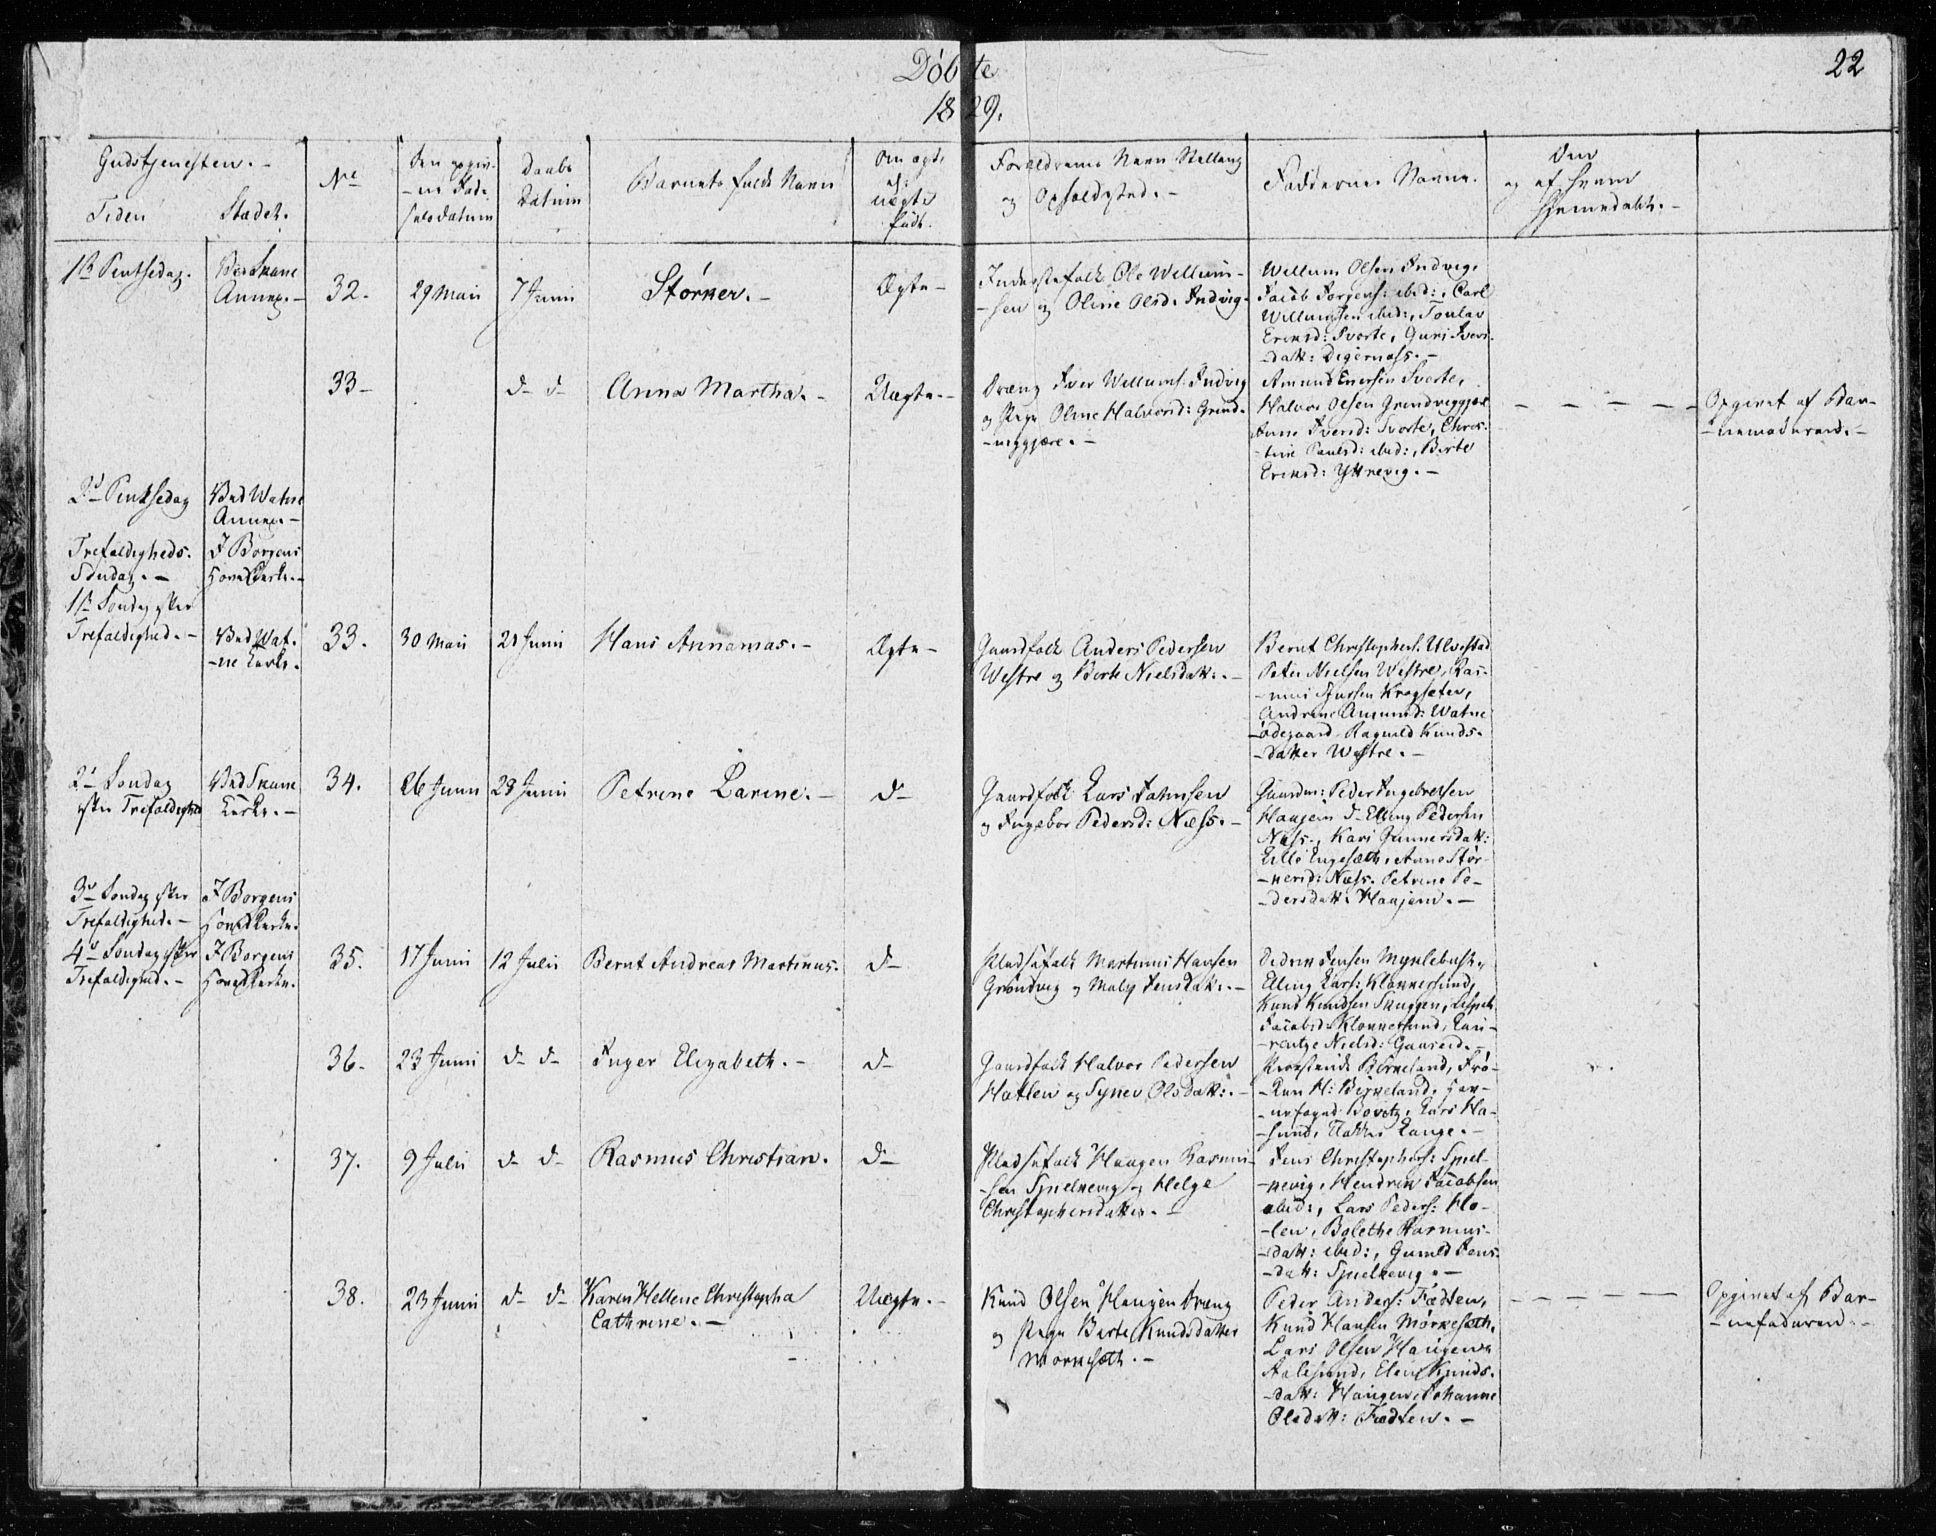 Døbte
22
1829.
Gudstjenesten. -
Tiden
Stædet.
No
Den opgiv-
-ne Fød-
selsdatum
Daabs
Datum
Barnets fulde Navn
Om ægte
el:
uægte
født.
Forældrenes Navn Stilling
og Opholdsted. -
Faddernes Navne.
Om
og af hvem
hjemmedøbt. -
1ste Pintsedag.
Ved Skaue
Annex. -
32.
29 Maii
7 Junii
Størker. -
Ægte -
Inderstefolk Ole Willum-
-sen og Oline Olsd. Indvig.
Willum Olsen Indvig,
Jacob Jorgens: ibid:, Carl
Willumsen ibid:,
Ericsd: Svorte, Guri Ivers-
-datt: Digernæss. -
33 -
d- d-
Anna Martha. -
Uægte. -
Dræng Iver Willums: Indvig
og Pige Oline Halvorsd: Grind-
-viggjære. -
Amund Svorte,
Halvor Olsen Grindviggjære
Anne Iversd: Svorte, Chris-
-tine Paulsd: ibid:, Birte
Ericsd: Yttrevig. -
Opgivet af Bar-
-nemoderen. -
2den Pintsedag
Ved Watne
Annex. -
Trefoldigheds-
Søndag. -
I Borgens
Hovedkirke. -
1ste Søndag efter
Trefoldighed. -
Ved Wat-
-ne Kirke.
33.
30 Maii
21 Junii
Hans Annanias. -
Ægte -
Gaardfolk Anders Pedersen
Westre og Berte Nielsdatt:. -
Bernt Christophers: Ulvestad
Peter Nielsen Westre, Ras-
-mus Sjursen Kragsæter,
Andrine Amunds: Watne
Ødegaard Ragnild Knuds-
-datter Westre. -
2den Søndag
efter Trefoldighed
Ved Skaue
Kirke. -
34.
26 Junii
28 Junii
Petrine Larine. -
d-
Gaardfolk Lars Johnsen
og Ingebor Pedersd: Næss. -
Gaardm: Peder Ingebretsen
Haajem I- Elling Pedersen
Næss., Kari Gunnersdatt:
Lille Engesæth, Anne Stør-
-kersd: Næss. Petrine Pe-
-dersdatt: Haajem. -
3die Søndag efter
Trefoldighed. -
I Borgens
Hovedkirke.
4de Søndag efter
Trefoldighed. -
I Borgens
Hovedkirke.
35.
17 Junii
12 Julii
Bernt Andreas Martinus.
d-
Pladsefolk Martinus Hansen
Grøndvig og Maly Jensdatt:. -
Didrik Jensen Myklebust,
Elling Lars: Klokkersund,
Knud Knudsen Skuggen, Lispet
Jacobsd: Klokkersund, Lau-
-rentze Nielsd: Gaaseid. -
36.
23 Junii
d- d-
Inger Elizabeth. -
d-
Gaardfolk Halvor Pedersen
Hatlen og Synev Olsdatt:. -
Provstinde Birkeland, Frø-
-ken H: Birkeland,
Lars Ha-
-sund, Lange. -
37.
9 Julii
d- d-
Rasmus Christian.
d-
Pladsefolk Haagen Rasmus-
-sen Spielkevig og Helge
Christophersdatter. -
Jens Christophers: Spiel-
-kevig, Hendrik Jacobsen
ibid:, Lars Peders: Ho-
-len, Bolethe Rasmus-
-datt: ibid:, Gunild Jens-
-datt: Spielkevig. -
38.
23 Junii
d- d-
Karen Hellene Christopha
Cathrine. -
Uægte. -
Knud Olsen Haugen Dræng
og Pige Berte Knudsdatter
Morkesæth. -
Peder Anders: Fædten,
Knud Hansen Mørkesæth,
Lars Olsen Haugen
Aalesund, Elen Knuds-
-datt: Haugen, Johanne
Olsdatt: Fædten. -
Opgivet af Bar-
-nefaderen. -